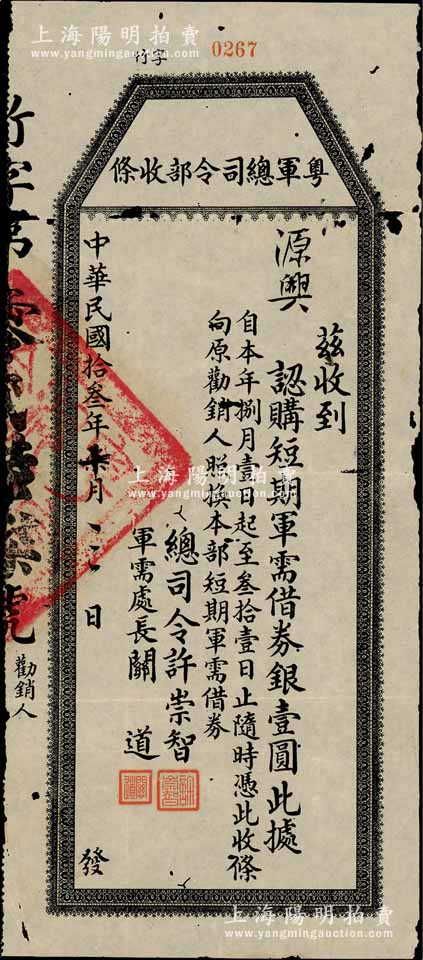 上海陽明拍賣
www.yangmingauction.com
竹字
0267
粤軍總司令部收條
茲收到
源興 認購短期軍需借券銀壹圓此據
自本年捌月壹日起至叁拾壹日止隨時憑此收條
向原勸銷人照換本部短期軍需借券
總司令許崇智
軍需處長關道
許崇智
關道
中華民國拾叁年 月 日
發
竹字第零貳陸柒號
勸銷人
上海陽明拍賣
www.yangmingauction.com
上海陽明拍賣
www.yangmingauction.com